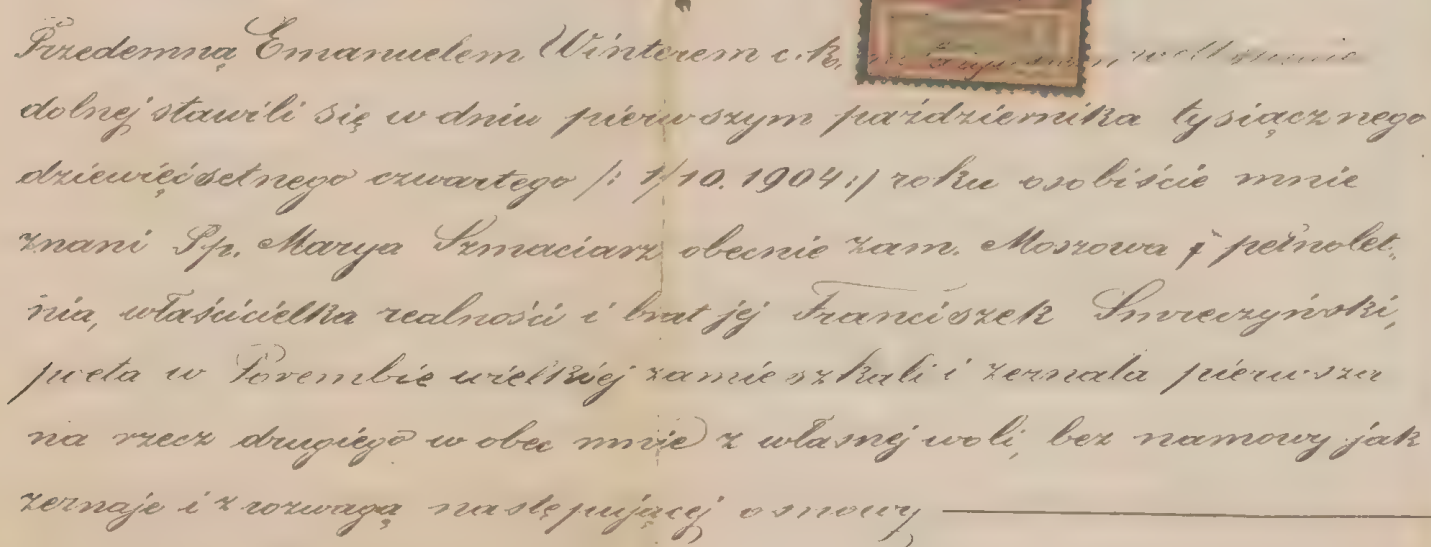 Przedemną Emanuelem Winterem c. k.
dolnej stawili się w dniu pierwszym października tysiącznego
dziewięćsetnego czwartego /: 1/10. 1904 :/ roku osobiście mnie
znani Pp. Marya Szmaciarz obecnie zam. Moszowa pełnolet-
nia, właścicielka realności i brat jéj Franciszek Smreczyński,
poeta w Porembie wielkiéj zamieszkali i zeznała piérwsza
na rzecz drugiégo wobec mnie z własnéj woli, bez namowy jak
zeznaje i z rozwagą następującéj osnowy